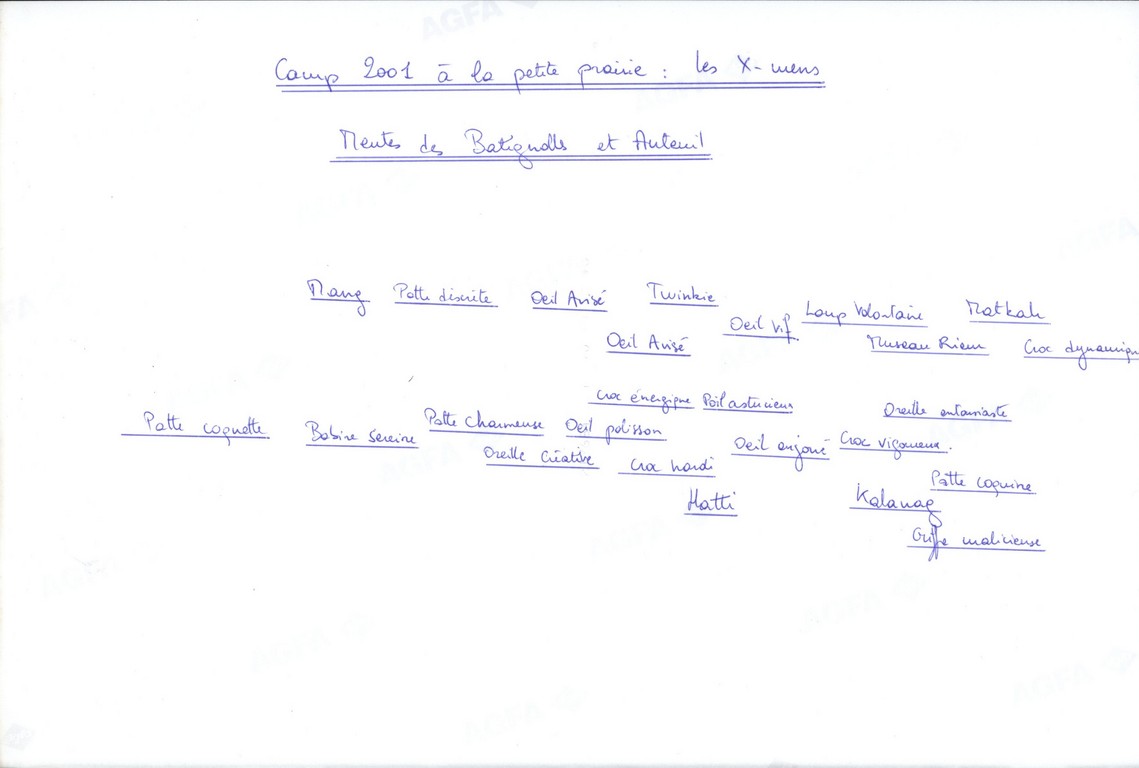 Camp 2001 à la petite prairie : les X-mens
Meutes des Batignolles et Auteuil
Mang Patte discrète Oeil Avisé Twinkie
Oeil Vif Loup Volontaire Matkah
Oeil Avisé Museau Rieur Croc dynamique
Croc énergique Poil astucieux Oreille entousiaste
Patte coquette Babine Sereine Patte Charmeuse Oeil polisson Oeil enjoué Croc vigoureux.
Oreille Créative Croc hardi Patte coquine
Hatti Kalanag
Griffe malicieuse
AGFA